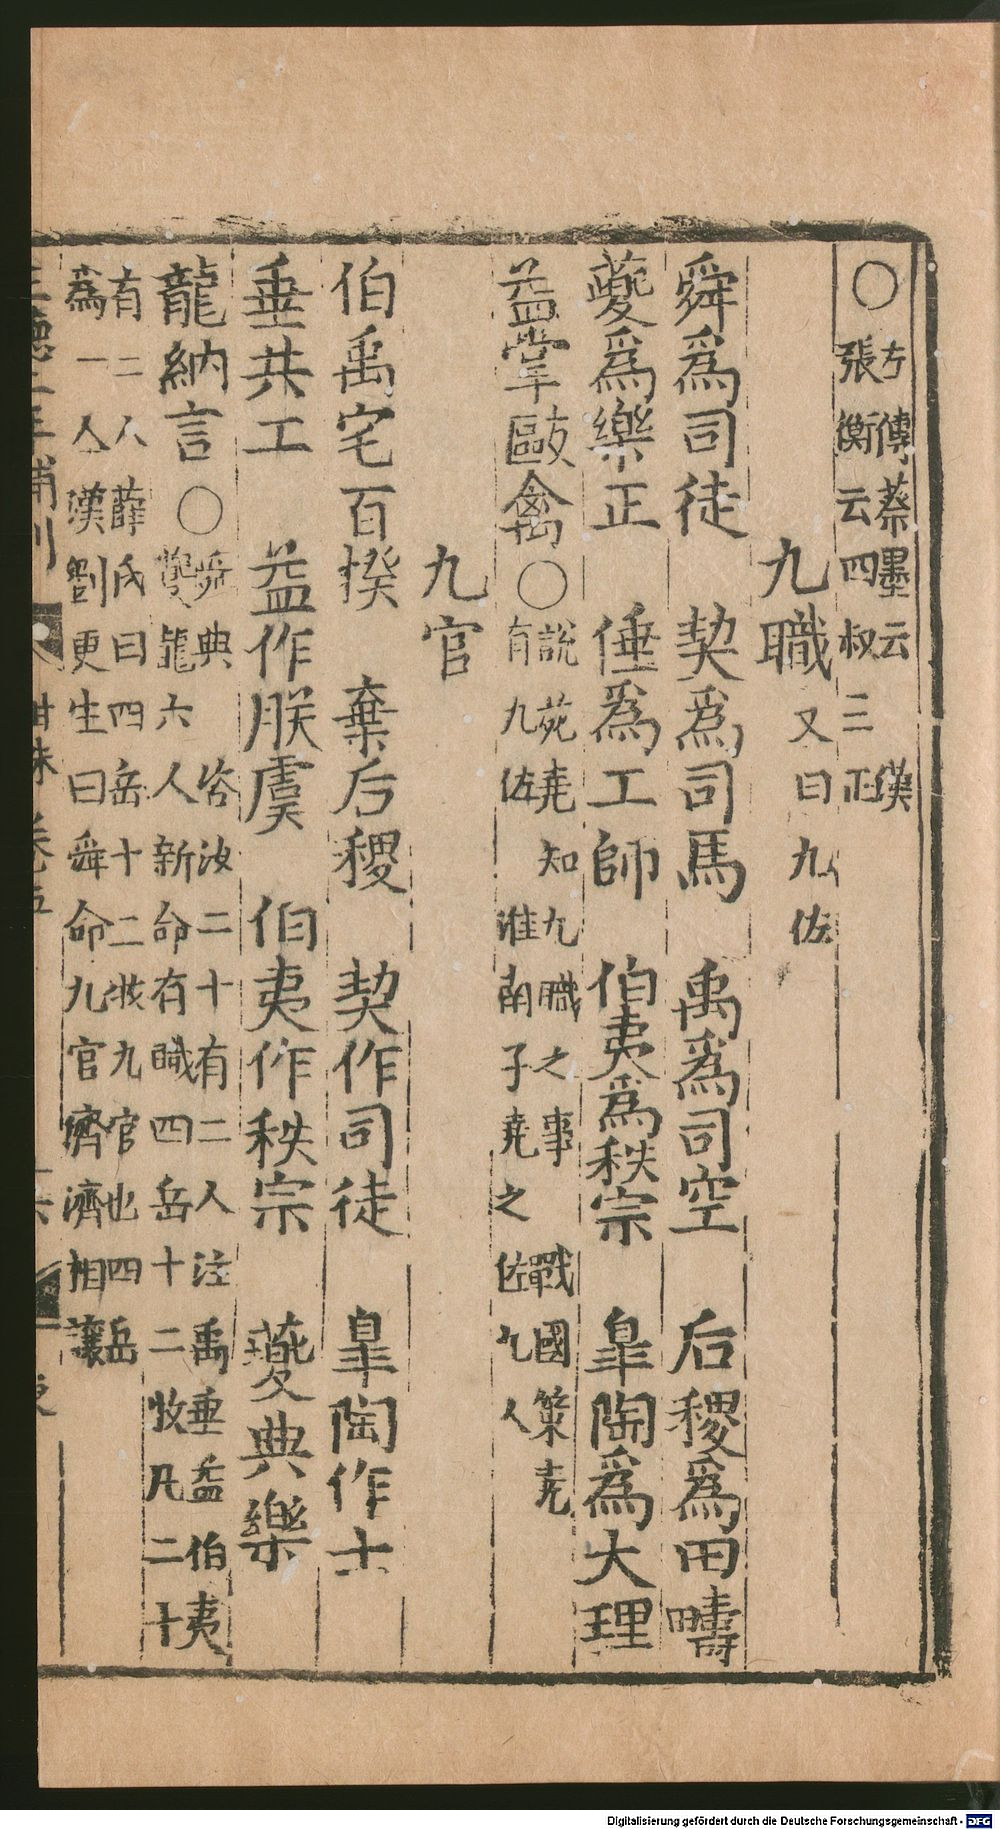 ○左傳蔡墨云 漢
張衡云四叔三正
九職又曰九佐
舜爲司徒 契爲司馬 禹爲司空 后稷爲田疇
夔爲樂正 倕爲工師 伯夷爲秩宗 皐陶爲大理
益掌敺禽○說苑堯知九職之事 戰國策堯
有九佐 淮南子堯之佐九人
九官
伯禹宅百揆 棄后稷 契作司徒 皐陶作士
垂共工 益作朕虞 伯夷作秩宗 夔典樂
龍納言○舜典 咨汝二十有二人注禹垂益伯夷
夔龍六人新命有職四岳十二牧凡二十
有二人薛氏曰四岳十二牧九官也四岳
爲一人漢劉更生曰舜命九官濟濟相讓
卷五
Digitalisierung gefördert durch die Deutsche Forschungsgemeinschaft - DFG